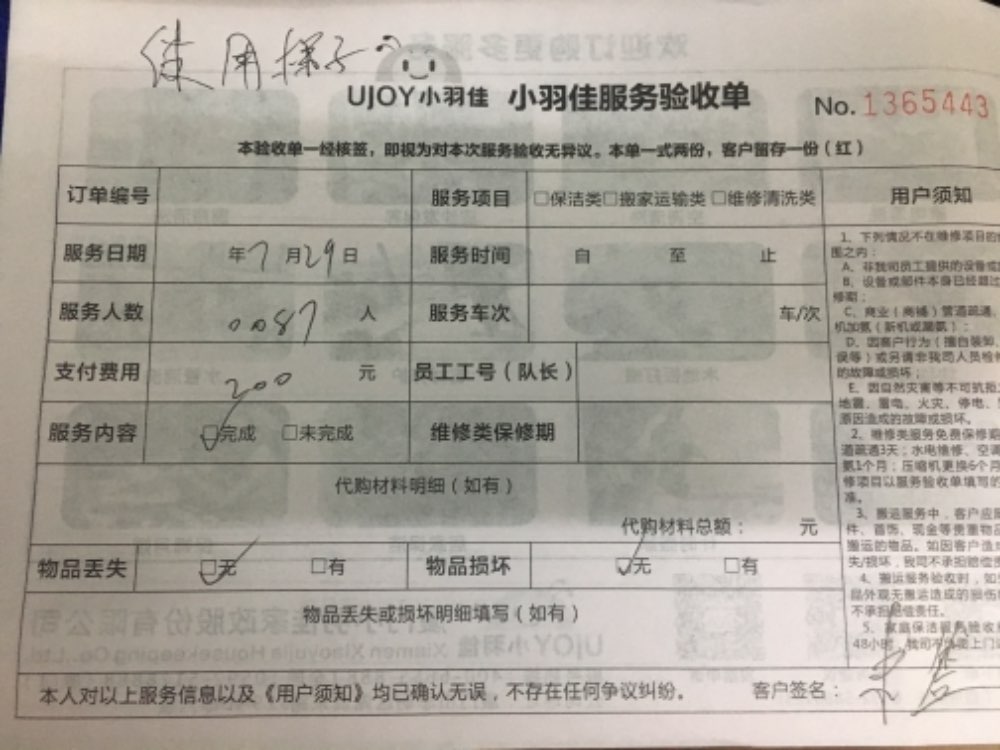 使用梯子
UJOY小羽佳 小羽佳服务验收单 No.1365443
本验收单一经核签，即视为对本次服务验收无异议。本单一式两份，客户留存一份（红）
订单编号 服务项目 □保洁类□搬家运输类 □维修清洗类 用户须知
服务日期 年7月29日 服务时间 自 至 止
服务人数 0087 人 服务车次 车/次
支付费用 200 元 员工工号（队长）
服务内容 □完成 □未完成 维修类保修期
代购材料明细（如有）
代购材料总额： 元
物品丢失 □无 □有 物品损坏 □无 □有
物品丢失或损坏明细填写（如有）
本人对以上服务信息以及《用户须知》均已确认无误，不存在任何争议纠纷。 客户签名：
1、下列情况不在维修项目的
围之内：
A、非我司员工提供的设备或
B、设备或部件本身已经超过
修期；
C、商业（商铺）管道疏通、
机加氨（新机或漏氨）：
D、因客户行为（擅自装卸、
误等）或另请非我司人员检修
的故障或损坏；
E、因自然灾害等不可抗拒
地震、雷电、火灾、停电、
原因造成的故障或损坏。
2、维修类服务免费保修
道疏通3天；水电维修、空调
氨1个月；压缩机更换6个月
修项目以服务验收单填写的
准。
3、搬运服务中，客户应
件、首饰、现金等贵重物品
搬运的物品。如因客户造
失/损坏，我司不承担赔偿责
4、搬运服务验收时，如
品外观无搬运造成的损伤
不承担赔偿责任。
5、家庭保洁服务验收
48小时，我司不 上门